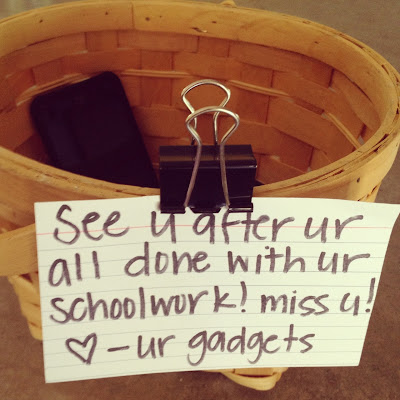 See u after ur
all done with ur
schoolwork! miss u!
♡ - ur gadgets